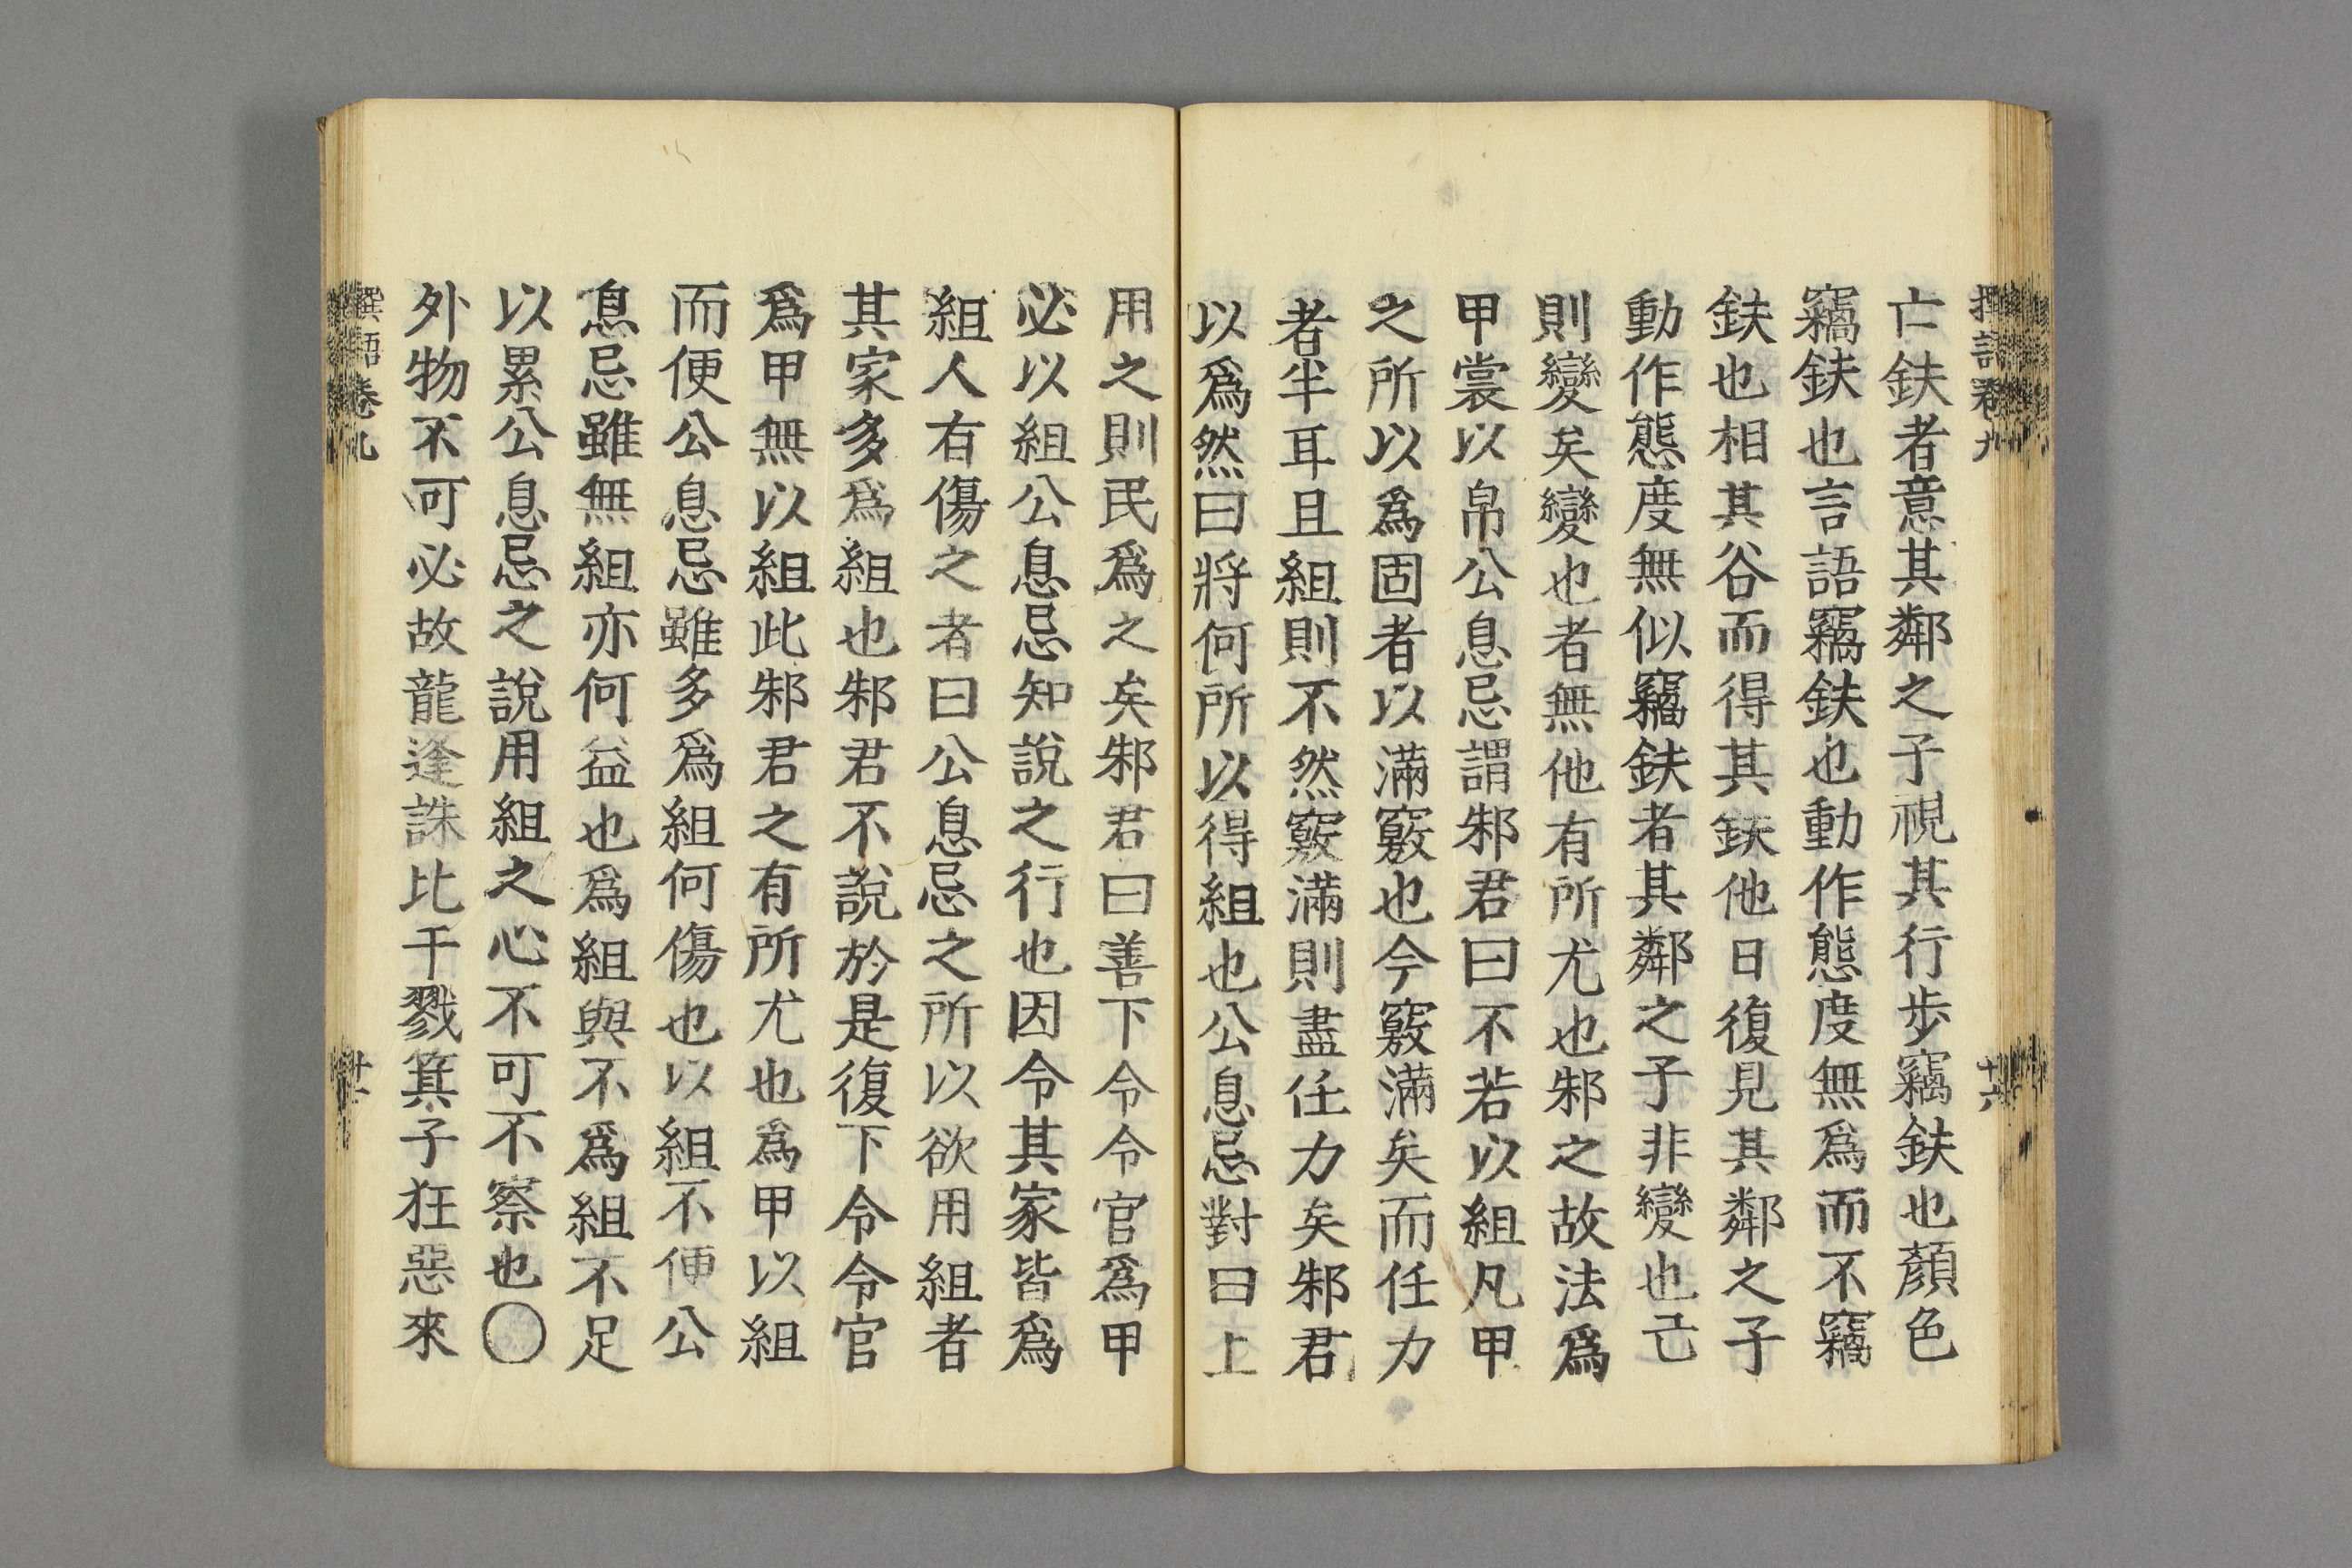 亡鈇者意其鄰之子視其行步竊鈇也顏色
竊鈇也言語竊鈇也動作態度無爲而不竊
鈇也相其谷而得其鈇他日復見其鄰之子
動作態度無似竊鈇者其鄰之子非變也己
則變矣變也者無他有所尤也邾之故法爲
甲裳以帛公息忌謂邾君曰不若以組凡甲
之所以爲固者以滿竅也今竅滿矣而任力
者半耳且組則不然竅滿則盡任力矣邾君
以爲然曰將何所以得組也公息忌對曰上
用之則民爲之矣邾君曰善下令令官爲甲
必以組公息忌知說之行也因令其家皆爲
組人有傷之者曰公息忌之所以欲用組者
其家多爲組也邾君不說於是復下令令官
爲甲無以組此邾君之有所尤也爲甲以組
而便公息忌雖多爲組何傷也以組不便公
息忌雖無組亦何益也爲組與不爲組不足
以累公息忌之說用組之心不可不察也〇
外物不可必故龍逢誅比干戮箕子狂惡來
卷九